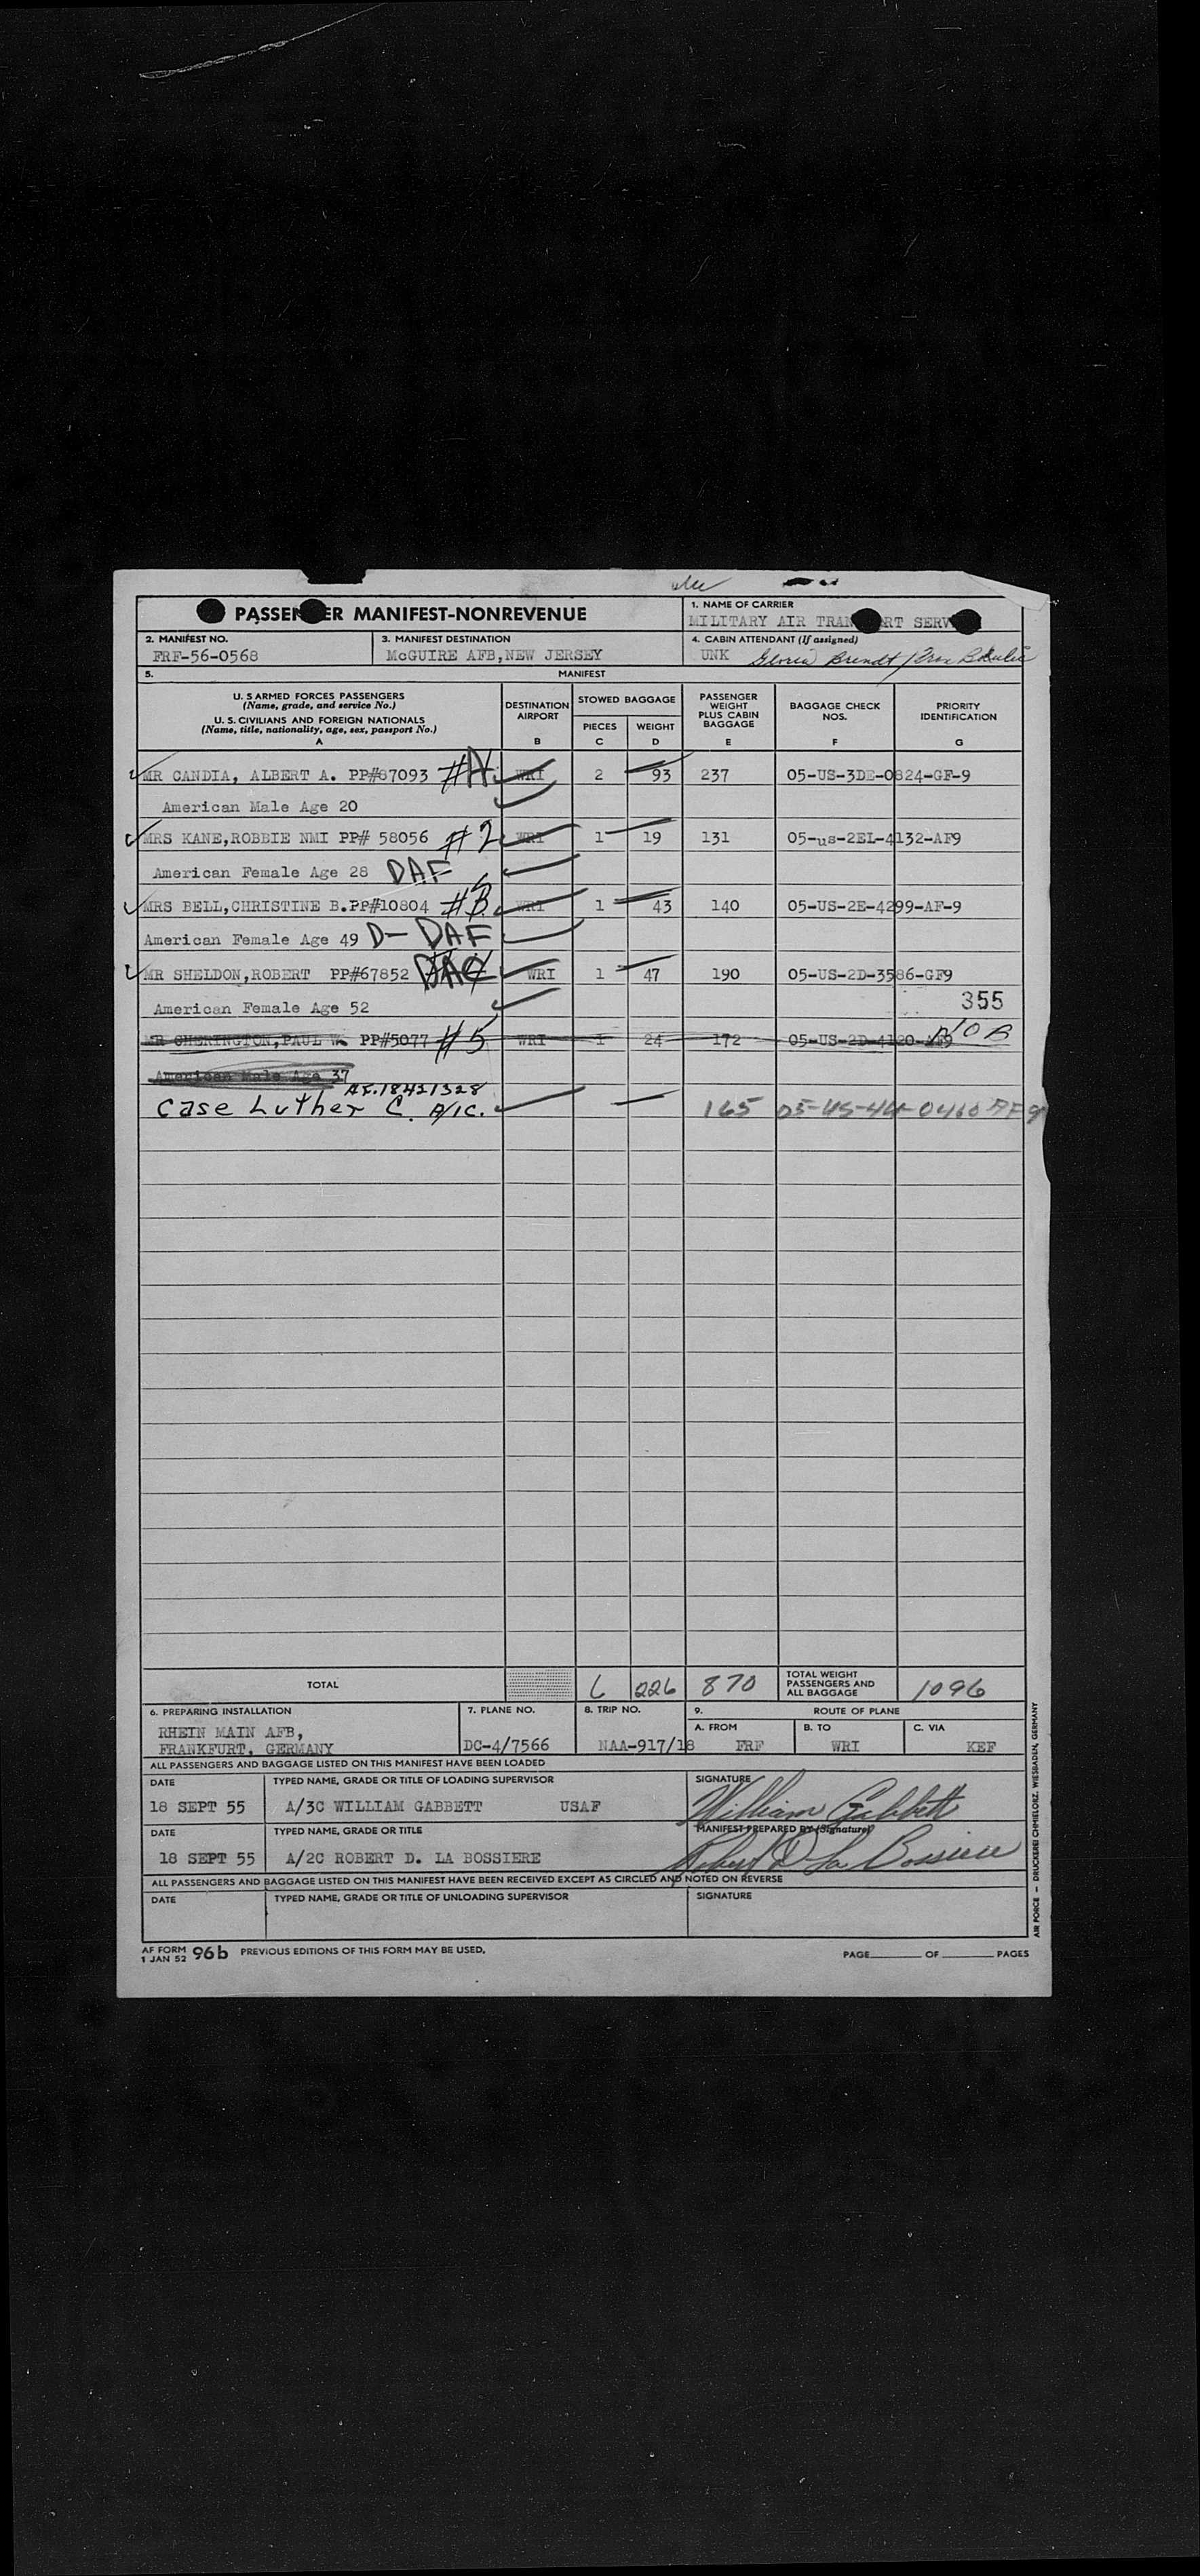 PASSENGER MANIFEST-NONREVENUE
1. NAME OF CARRIER
MILITARY AIR TRANSPORT SERV
2. MANIFEST NO.
FRF-56-0568
3. MANIFEST DESTINATION
McGUIRE AFB,NEW JERSEY
4. CABIN ATTENDANT (If assigned)
UNK Gloria Brendt /
5. MANIFEST
U. S ARMED FORCES PASSENGERS
(Name, grade, and service No.)
U. S. CIVILIANS AND FOREIGN NATIONALS
(Name, title, nationality, age, sex, passport No.)
A
DESTINATION AIRPORT
B
STOWED BAGGAGE
PIECES
C
WEIGHT
D
PASSENGER WEIGHT PLUS CABIN BAGGAGE
E
BAGGAGE CHECK NOS.
F
PRIORITY IDENTIFICATION
G
MR CANDIA, ALBERT A. PP#87093 #A WRI 2 93 237 05-US-3DE-0824-GF-9
American Male Age 20
MRS KANE,ROBBIE NMI PP# 58056 #2 WRI 1 19 131 05-us-2EL-4132-AF9
American Female Age 28 DAF
MRS BELL,CHRISTINE B.PP#10804 #3 WRI 1 43 140 05-US-2E-4299-AF-9
American Female Age 49 D- DAF
MR SHELDON,ROBERT PP#67852 DAC WRI 1 47 190 05-US-2D-3586-GF9
American Female Age 52 355
MR CHERINGTON,PAUL W. PP#5077 #5 WRI 1 24 172 05-US-2D-4120-AF9 NOB
American Male Age 37
AF.18421328
Case Luther C. A/1C. 165 05-US-44-0460 AF9
TOTAL 6 226 870
TOTAL WEIGHT PASSENGERS AND ALL BAGGAGE 1096
6. PREPARING INSTALLATION
RHEIN MAIN AFB,
FRANKFURT, GERMANY
7. PLANE NO.
DC-4/7566
8. TRIP NO.
NAA-917/18
9. ROUTE OF PLANE
A. FROM
FRF
B. TO
WRI
C. VIA
KEF
ALL PASSENGERS AND BAGGAGE LISTED ON THIS MANIFEST HAVE BEEN LOADED
DATE
18 SEPT 55
TYPED NAME, GRADE OR TITLE OF LOADING SUPERVISOR
A/3C WILLIAM GABBETT USAF
SIGNATURE
William Gabbett
DATE
18 SEPT 55
TYPED NAME, GRADE OR TITLE
A/2C ROBERT D. LA BOSSIERE
MANIFEST PREPARED BY (Signature)
Robert D La Bossiere
ALL PASSENGERS AND BAGGAGE LISTED ON THIS MANIFEST HAVE BEEN RECEIVED EXCEPT AS CIRCLED AND NOTED ON REVERSE
DATE
TYPED NAME, GRADE OR TITLE OF UNLOADING SUPERVISOR
SIGNATURE
AF FORM 1 JAN 52 96b PREVIOUS EDITIONS OF THIS FORM MAY BE USED.
PAGE OF PAGES
AIR FORCE – DRUCKEREI CHMIELORZ. WIESBADEN, GERMANY